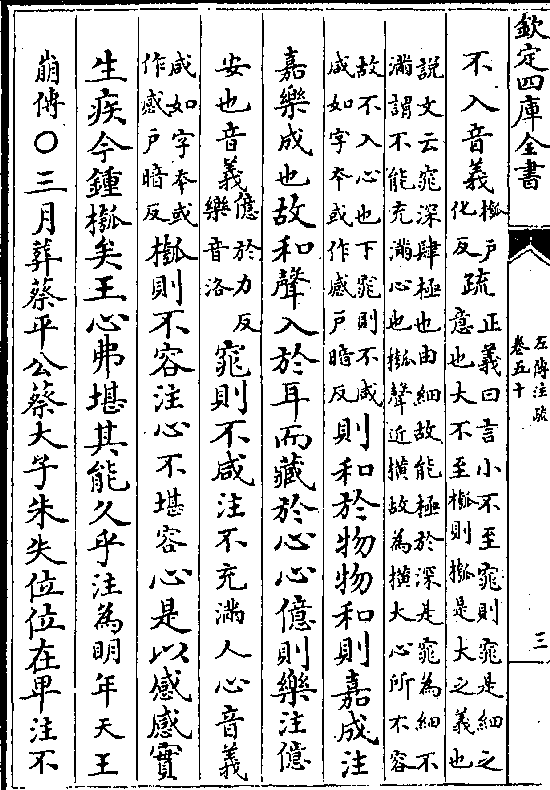 欽定四庫全書
左傳注疏
卷五十
三
不入音義摦户化反疏正義曰言小不至窕則窕是細之意也大不至摦則摦是大之義也
說文云窕深肆極也由細故能極於深是窕為細不
滿謂不能充滿心也摦聲近橫故為橫大心所不容
故不入心也下窕則不咸咸如字本或作感户暗反則和於物物和則嘉成注
嘉樂成也故和聲入於耳而藏於心心億則樂注億
安也音義億於力反樂音洛窕則不咸注不充滿人心音義
咸如字本或作感户暗反摦則不容注心不堪容心是以感感實
生疾今鍾摦矣王心弗堪其能久乎注為明年天王
崩傳○三月葬蔡平公蔡大子朱失位位在卑注不